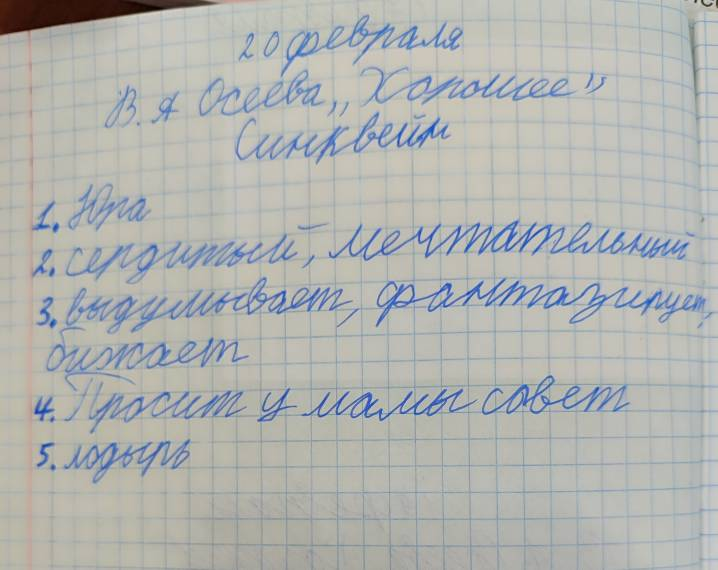 20 февраля
В. А Осеева „Хорошее"
Синквейн
1. Юра
2. сердитый, мечтательный
3. выдумывает, фантазирует,
бижает
4. Просит у мамы совет
5. лодырь